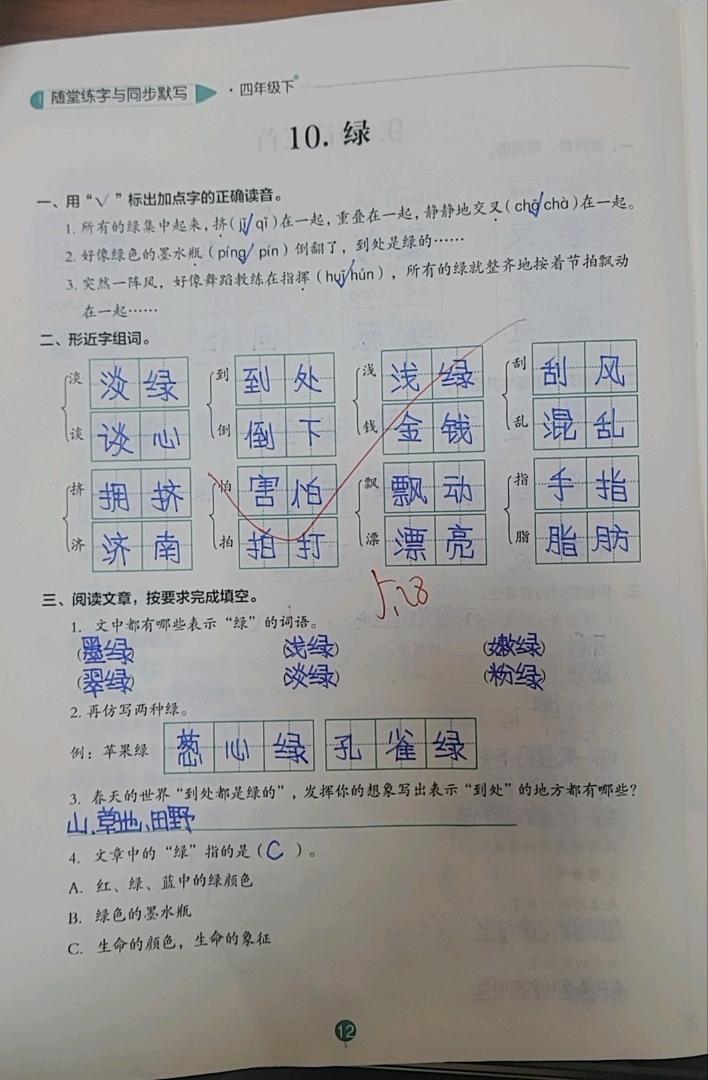 随堂练字与同步默写 · 四年级下
10. 绿
一、用“√”标出加点字的正确读音。
1. 所有的绿集中起来，挤（jǐ√ qǐ）在一起，重叠在一起，静静地交叉（chā√ chà）在一起。
2. 好像绿色的墨水瓶（píng√ pín）倒翻了，到处是绿的……
3. 突然一阵风，好像舞蹈教练在指挥（huī√ hún），所有的绿就整齐地按着节拍飘动
在一起……
二、形近字组词。
淡 淡绿 到 到处 浅 浅绿 刮 刮风
谈 谈心 倒 倒下 钱 金钱 乱 混乱
挤 拥挤 怕 害怕 飘 飘动 指 手指
济 济南 拍 拍打 漂 漂亮 脂 脂肪
三、阅读文章，按要求完成填空。
5.28
1. 文中都有哪些表示“绿”的词语。
（墨绿） （浅绿） （嫩绿）
（翠绿） （淡绿） （粉绿）
2. 再仿写两种绿。
例：苹果绿 葱心绿 孔雀绿
3. 春天的世界“到处都是绿的”，发挥你的想象写出表示“到处”的地方都有哪些？
山、草地、田野
4. 文章中的“绿”指的是（C）。
A. 红、绿、蓝中的绿颜色
B. 绿色的墨水瓶
C. 生命的颜色，生命的象征
12